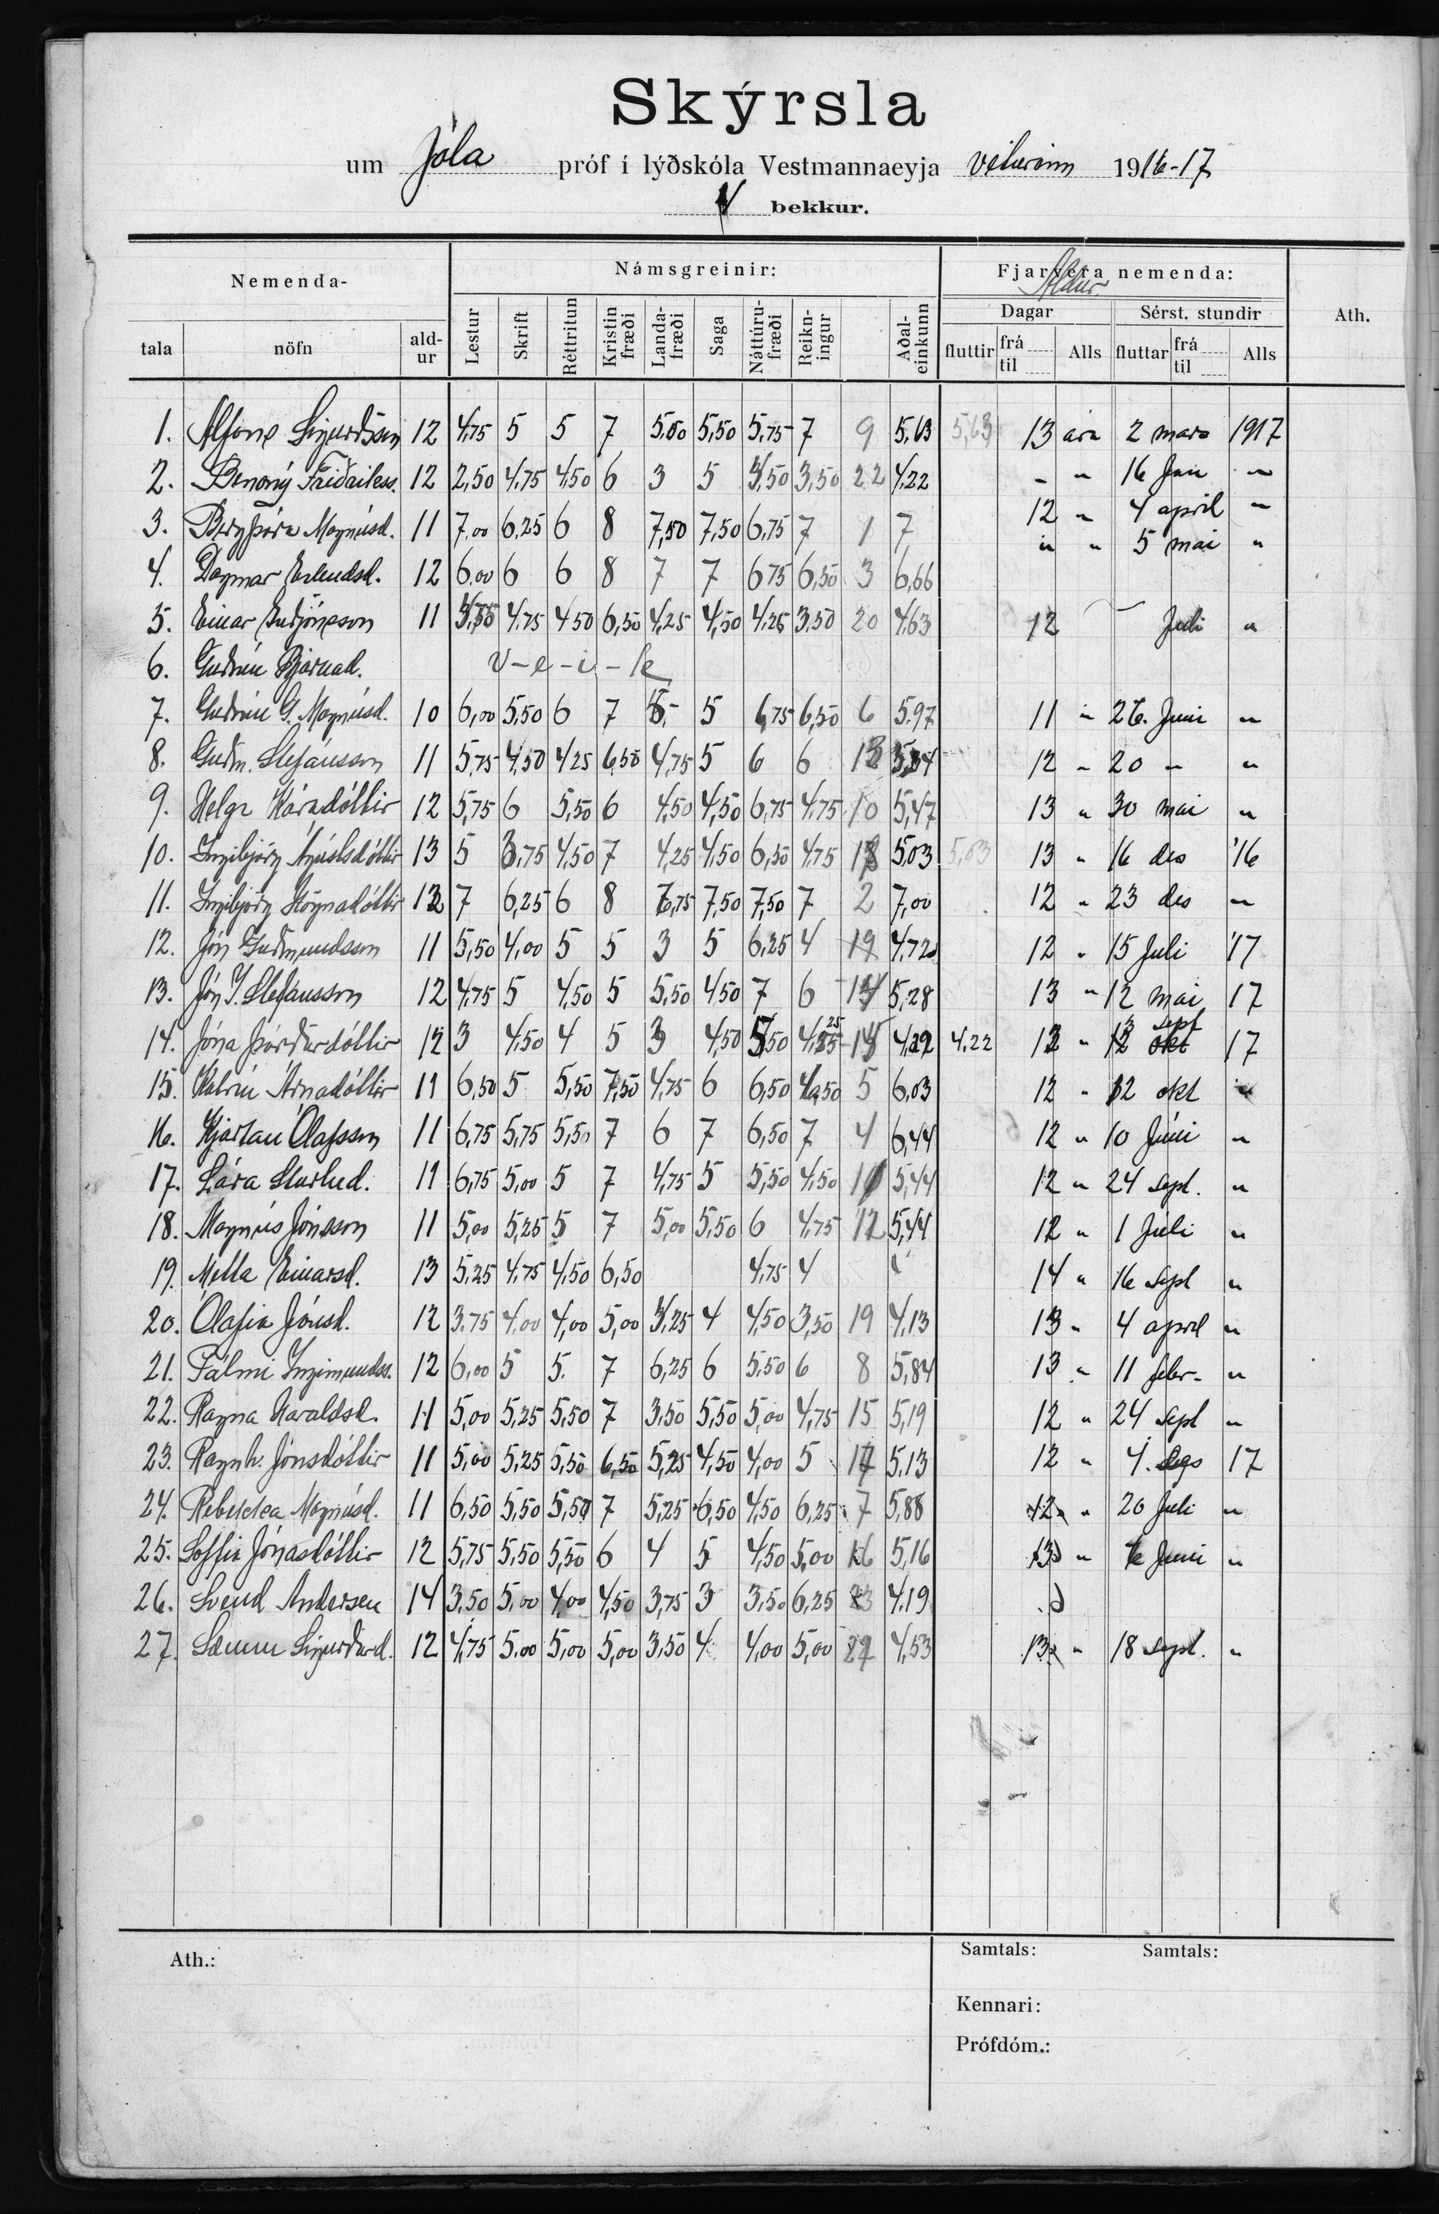 Skýrsla
um Jóla próf í lýðskóla Vestmannaeyja veturinn 1916-17
V bekkur.
Nemenda- Námsgreinir: Fjarvera nemenda: Ath.
Aldur
Dagar Sérst. stundir
tala nöfn ald-ur Lestur Skrift Réttritun Kristin fræði Landa-fræði Saga Náttúru-fræði Reikn-ingur Aðal-einkunn fluttir frá til Alls fluttar frá til Alls
1. Alfons Sigurðsson 12 4,75 5 5 7 5,00 5,50 5,75 7 9 5,63 5,63 13 ára 2 mars 1917
2. Benoný Friðrikss. 12 2,50 4,75 4,50 6 3 5 3,50 3,50 22 4,22 " " 16 Jan "
3. Bergþóra Magnúsd. 11 7,00 6,25 6 8 7,50 7,50 6,75 7 1 7 12 " 4 april "
4. Dagmar Erlendsd. 12 6,00 6 6 8 7 7 6,75 6,50 3 6,66 " " 5 mai "
5. Einar Guðjónsson 11 4,75 4,50 6,50 4,25 4,50 4,25 3,50 20 4,63 12 Juli "
6. Guðrún Bjarnad. v-e-i-k
7. Guðrún G. Magnúsd. 10 6,00 5,50 6 7 5 6,75 6,50 6 5,97 11 " 26. Juni "
8. Guðm. Stefánsson 11 5,75 4,50 4,25 6,50 4,75 5 6 6 13 12 " 20 " "
9. Helga Káradóttir 12 5,75 6 5,50 6 4,50 4,50 6,75 4,75 10 5,47 13 " 30 mai "
10. Ingibjörg Ágústsdóttir 13 5 3,75 4,50 7 4,25 4,50 6,50 4,75 18 5,03 5,03 13 " 16 des '16
11. Ingibjörg Högnadóttir 12 7 6,25 6 8 6,75 7,50 7,50 7 2 7,00 12 " 23 des "
12. Jón Guðmundsson 11 5,50 4,00 5 5 3 5 6,25 4 19 4,72 12 " 15 Juli '17
13. Jón I. Stefansson 12 4,75 5 4,50 5 5,50 4,50 7 6 14 5,28 13 " 12 mai 17
14. Jóna Þórðardóttir 12 3 4,50 4 5 3 4,50 5,50 4,25 4,22 12 " sept 17
15. Katrín Árnadóttir 11 6,50 5 5,50 7,50 4,75 6 6,50 6,50 5 6,03 12 " 12 okt "
16. Kjartan Ólafsson 11 6,75 5,75 5,50 7 6 7 6,50 7 4 6,44 12 " 10 Júni "
17. Lára Sturlud. 11 6,75 5,00 5 7 4,75 5 5,50 4,50 11 5,44 12 " 24 sept. "
18. Magnús Jónsson 11 5,00 5,25 5 7 5,00 5,50 6 4,75 12 5,44 12 " 1 Juli "
19. Metta Einarsd. 13 5,25 4,75 4,50 6,50 4,75 4 14 " 16 sept "
20. Ólafia Jónsd. 12 3,75 4,00 4,00 5,00 3,25 4 4,50 3,50 19 4,13 13 " 4 april "
21. Pálmi Ingimundss. 12 6,00 5 5. 7 6,25 6 5,50 6 8 5,84 13 " 11 febr. "
22. Ragna Haraldsd. 11 5,00 5,25 5,50 7 3,50 5,50 5,00 4,75 15 5,19 12 " 24 sept "
23. Ragnh. Jónsdóttir 11 5,00 5,25 5,50 6,50 5,25 4,50 4,00 5 17 5,13 12 " 4. 17
24. Rebekka Magnúsd. 11 6,50 5,50 5,50 7 5,25 6,50 4,50 6,25 7 5,88 12 " 20 Juli "
25. Soffia Jónasdóttir 12 5,75 5,50 5,50 6 4 5 4,50 5,00 16 5,16 13 " 6 Juni "
26. Svend Andersen 14 3,50 5,00 4,00 4,50 3,75 3 3,50 6,25 23 4,19
27. Sigurðard. 12 4,75 5,00 5,00 5,00 3,50 4 4,00 5,00 4,53 13 " 18 sept. "
Ath.: Samtals: Samtals:
Kennari:
Prófdóm.: